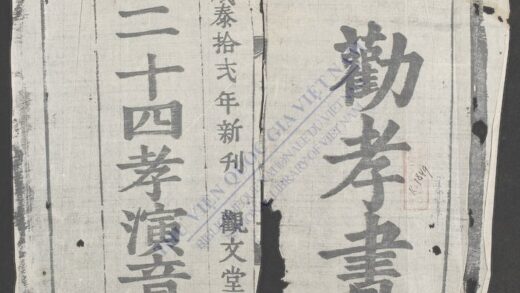 勸孝書
泰拾弍年新刊 觀文堂
二十四孝演音
THƯ VIỆN QUỐC GIA VIỆT NAM
BIBLIOTHÈQUE NATIONALE DU VIETNAM
NATIONAL LIBRARY OF VIETNAM